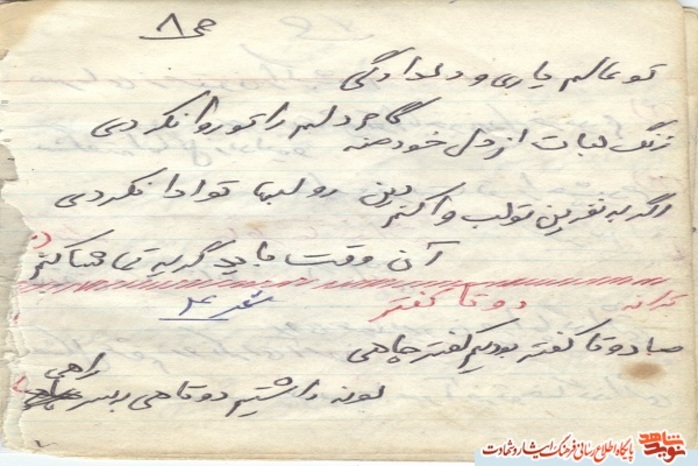 ص ۸
تو عالم یاری و دلدادگی
گاهی دلم را تو روا نکردی
زنگ لبات از دل خود منه
اگر به نفرین تو لب وا کنم بین رو لبها تو ادا نکردی
آن وقت باید گریه تماشا کنم
ترانه دو تا کفتر
شعر ۲
ما دو تا کفتر بودیم کفتر چاهی
لونه داشتیم دو تاهی بر سر راهی
نوید شاهد پایگاه اطلاع رسانی فرهنگ ایثار و شهادت